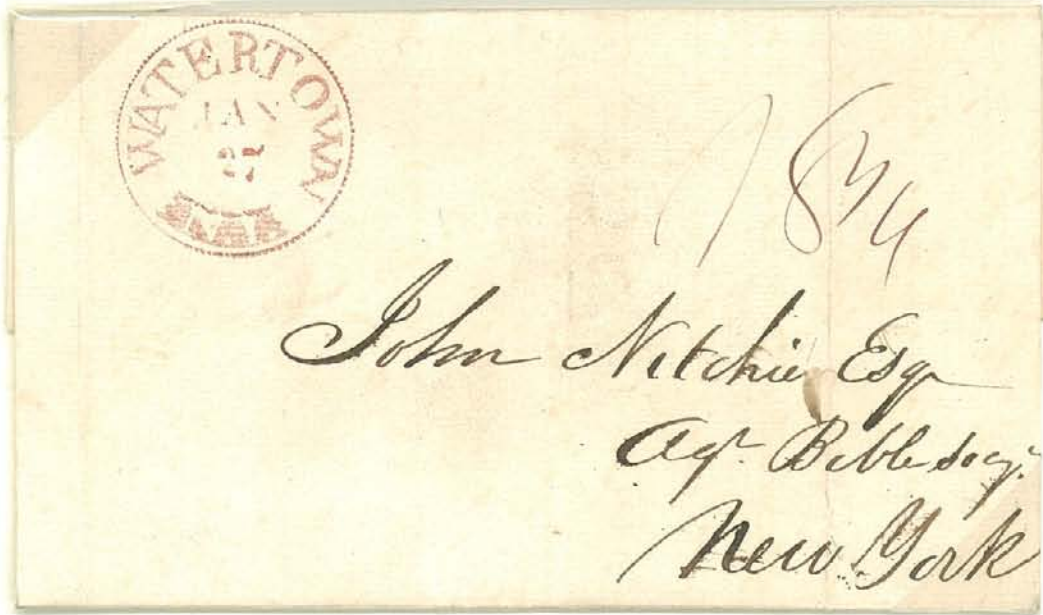 WATERTOWN
JAN
27
18 3/4
John Nitchie Esqr
Agt. Bible Socy.
New York